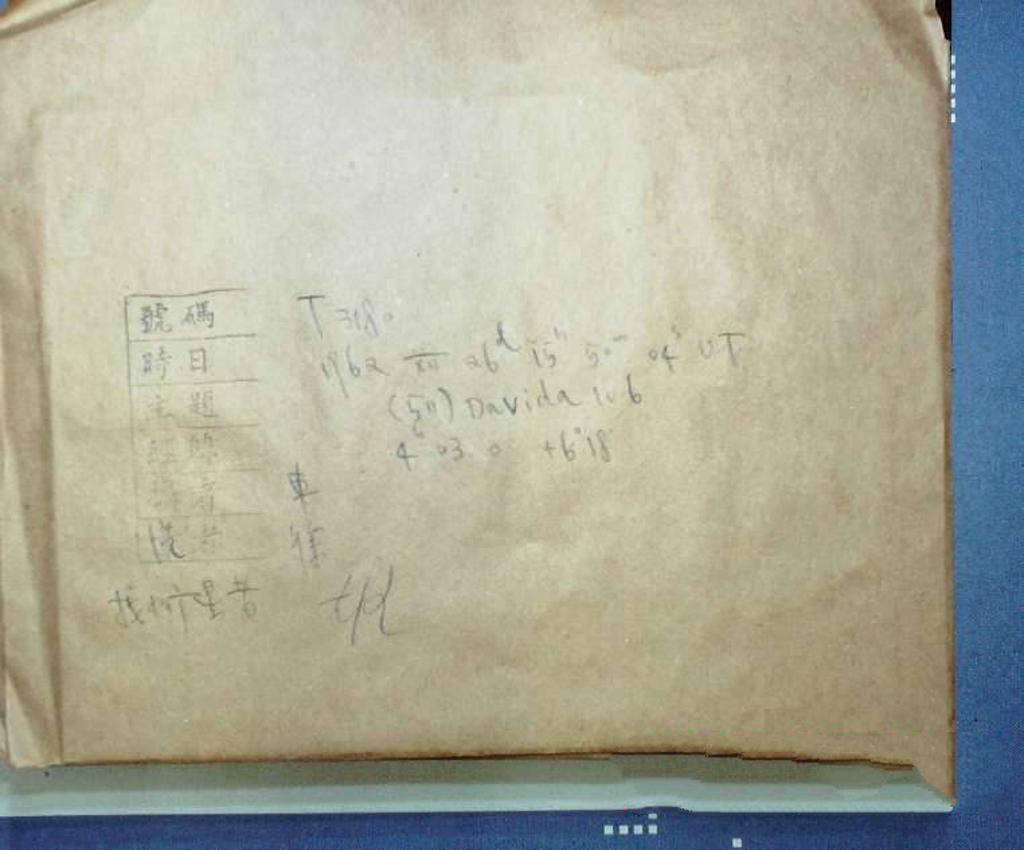 號碼 T 3180
時日 1962 XII 26d 15h 50m 04s UT
主題 (511) Davida 10b
經緯 4h 03.0 +6°18'
車
徐
找行星者